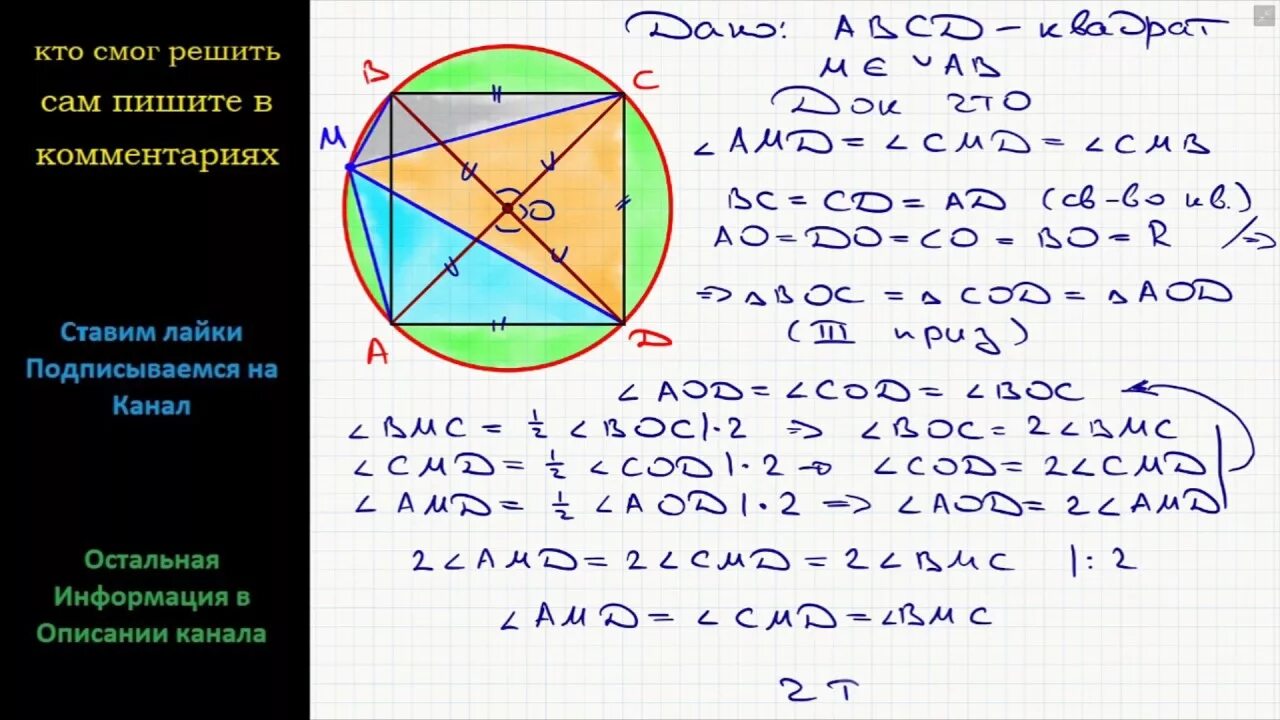 кто смог решить
сам пишите в
комментариях
Ставим лайки
Подписываемся на
Канал
Остальная
Информация в
Описании канала
B
C
M
O
A
D
Дано: ABCD – квадрат
M ∈ ◡AB
Док что
∠AMD = ∠CMD = ∠CMB
BC = CD = AD (св-во кв.)
AO = DO = CO = BO = R /⇒
⇒ ▵BOC = ▵COD = ▵AOD
(III приз)
∠AOD = ∠COD = ∠BOC
∠BMC = ½ ∠BOC |·2 ⇒ ∠BOC = 2∠BMC
∠CMD = ½ ∠COD |·2 ⇒ ∠COD = 2∠CMD
∠AMD = ½ ∠AOD |·2 ⇒ ∠AOD = 2∠AMD
2∠AMD = 2∠CMD = 2∠BMC |:2
∠AMD = ∠CMD = ∠BMC
ч т